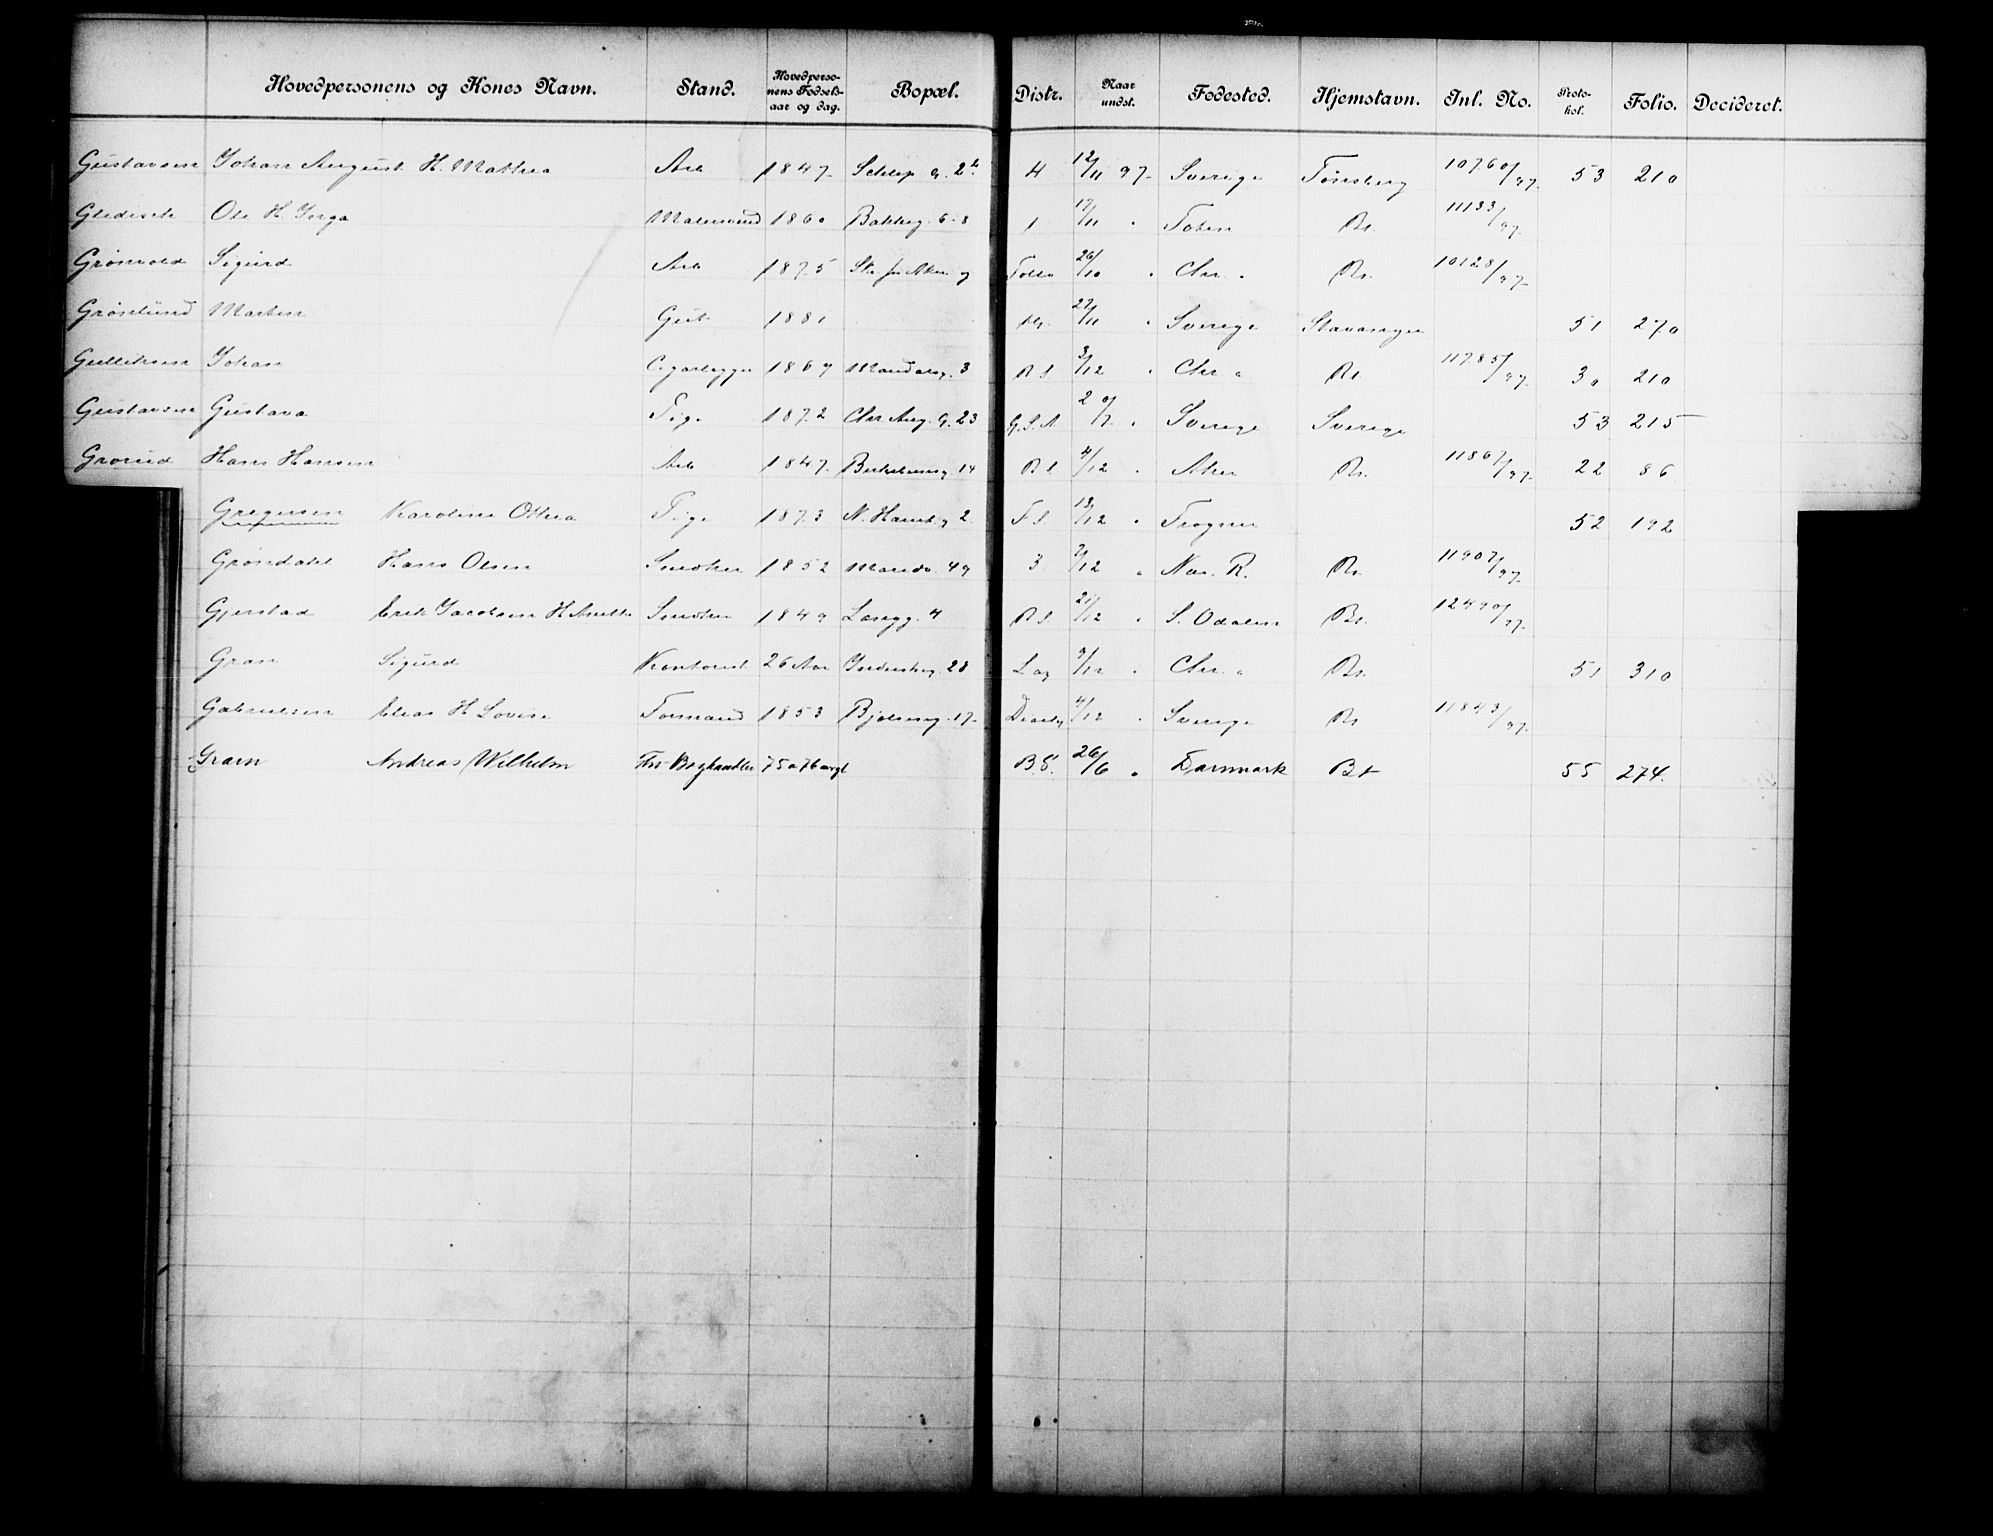 Hovedpersonens og Kones Navn. Stand. Hovedpersonens Fødselsaar og dag. Bopæl. Distr. Naar undst. Fødested. Hjemstavn. Inl. No. Protokol. Folio. Decideret.
Gustavsen Johan August H. Mathea Arb 1847 4 12/11 97 Sverige Tønsberg 10760/97 53 210
Ole H. Inga 1860 Bakkeg. 6-8 1 17/11 " Toten Br. 11133/97
Grønvold Sigurd Arb 1875 26/10 " Chr. " Br. 10128/97
Grønlund Martin Gut 1881 22/11 " Sverige Stavanger 51 270
Gulliksen Johan 3 RS 3/12 " Chr " Br 11785/97 30 210
Gustavsen Gustava Pige 1872 Chr Aug. G. 23 G.S.A " Sverige Sverige 53 215
Grorud Hans Hansen Arb 1847 14 4/12 " Aker Br. 11867/97 22 86
Gregersen Karoline Othea Pige 1873 2 FS 13/12 " Frogner 52 192
Grøndahl Hans Olsen Snedker 1852 49 3 7/12 " Nor. R. Br 11907/97
Gjerstad Erik Jacobsen H Anette Snedker 1849 Langg. 4 RS 21/12 " S. Odalen Br. 12490/97
Gran Sigurd Kontorist 26 Aar 28 9/12 " Chr. " Br. 51 310
Gabrielsen Elias H Lovise Formand 1853 Bjølseng. 17 4/12 " Sverige Br 11843/97
Gram Andreas Wilhelm Fhv Boghandler 75 a 76 B.S. 26/6 " Danmark Bt 55 274.